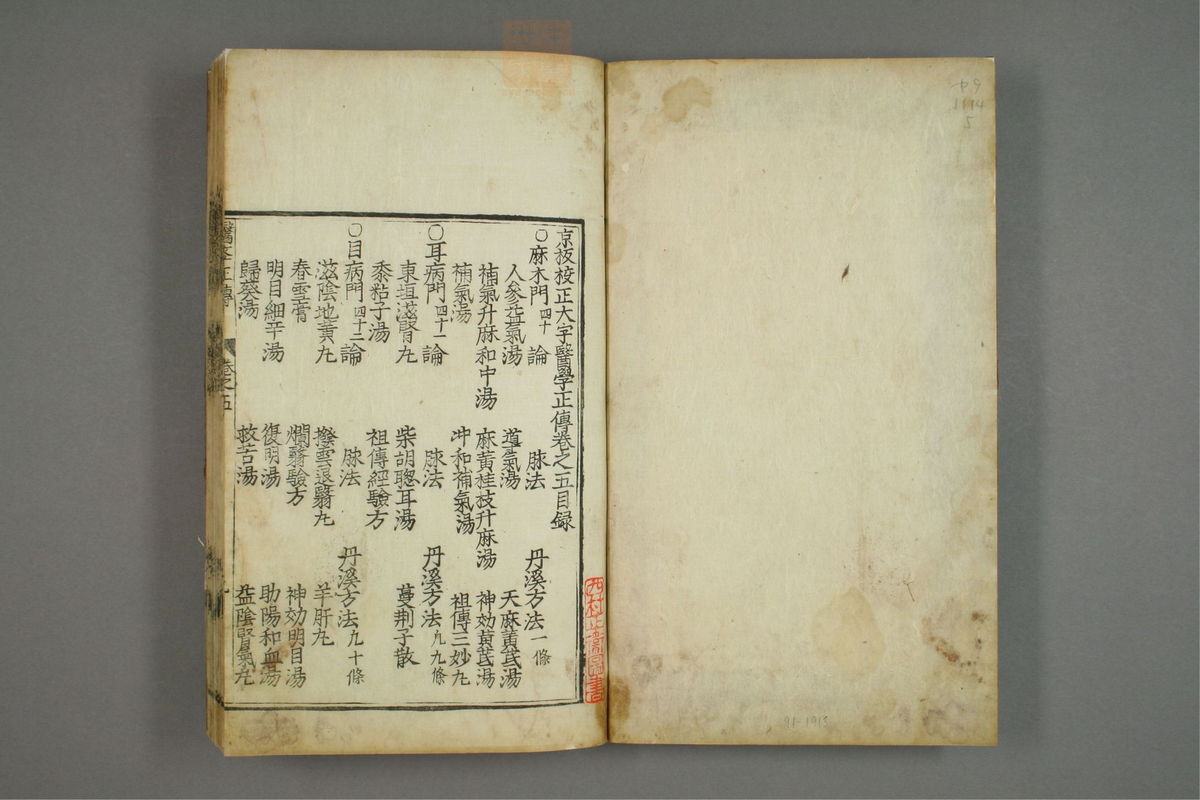 京板校正大字醫學正傳卷之五目録
○麻木門 四十 論 脉法 丹溪方法 一條
人參益氣湯 導氣湯 天麻黃芪湯
補氣升麻和中湯 麻黃桂枝升麻湯 神効黃芪湯
補氣湯 冲和補氣湯 祖傳三妙丸
○耳病門 四十一 論 脉法 丹溪方法 凡九條
東垣滋腎丸 柴胡聦耳湯 蔓荆子散
黍粘子湯 祖傳經驗方
○目病門 四十二 論 脉法 丹溪方法 九十條
滋陰地黃丸 撥雲退翳丸 羊肝丸
春雪膏 爛翳驗方 神効明目湯
明目細辛湯 復明湯 助陽和血湯
歸葵湯 救苦湯 益陰腎氣丸
醫學正傳 卷之五
91-1913